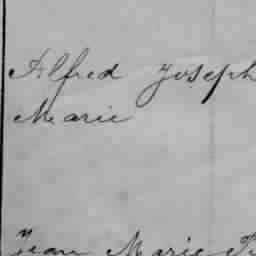 Alfred Joseph
Marie
Jean Marie